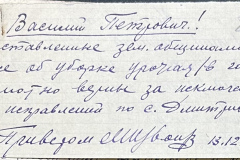 Василий Петрович!
ставленные зем. общинами
се об уборке урочая (в г
мотно верны за исключ
исправлений по с. Дмитри
Приветом 13.12